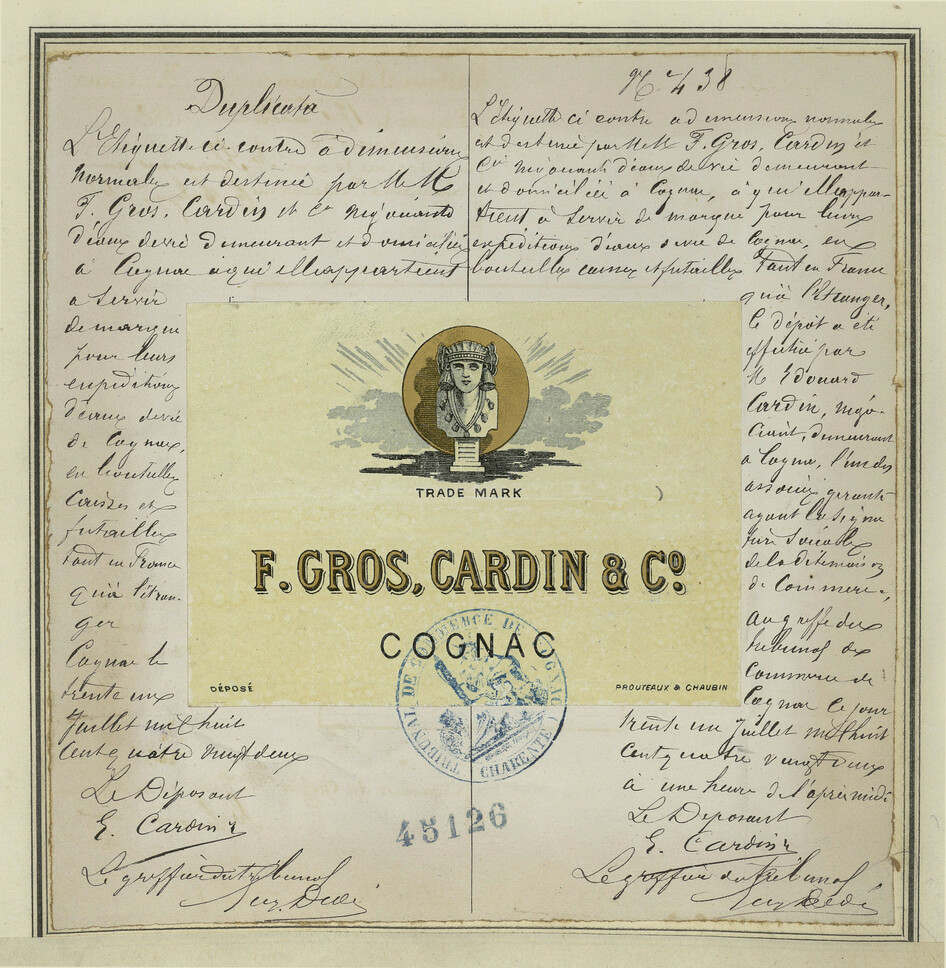 Duplicata
L'Etiquette ci contre à dimensions
normales est destinée par M M
F. Gros, Cardin et Cie négociants
d'eaux de vie demeurant et domiciliés
à Cognac à qui elle appartient
a servir
de marque
pour leurs
expeditions
d'eaux de vie
de Cognac,
en bouteilles
Caisses et
futailles
tant en France
qu'à l'étran-
ger
Cognac le
trente un
Juillet mil huit
Cent quatre vingt deux
Le Déposant
E. Cardin
Le greffier du tribunal
No 438
L'Etiquette ci contre a dimensions normales
est destinée par M M F. Gros, Cardin et
Cie négociants d'eaux de vie demeurant
et domiciliés à Cognac, à qui elle appar-
tient à Servir de marque pour leurs
expeditions d'eaux de vie de Cognac, en
bouteilles caisses et futailles tant en France
qu'à l'Etranger,
le dépôt a été
effectué par
M Edouard
Cardin, négo-
ciant, demeurant
a Cognac, l'un des
associés gerants
ayant la signa
ture Sociale
de la dite maison
de Commerce,
au greffe du
tribunal de
Commerce de
Cognac ce jour
trente un Juillet mil huit
Cent quatre vingt deux
à une heure de l'après midi
Le Deposant
E. Cardin
Le greffier du tribunal
TRADE MARK
F. GROS, CARDIN & Co.
COGNAC
DÉPOSÉ
PROUTEAUX & CHAUBIN
TRIBUNAL DE COMMERCE DE COGNAC
CHARENTE
45126